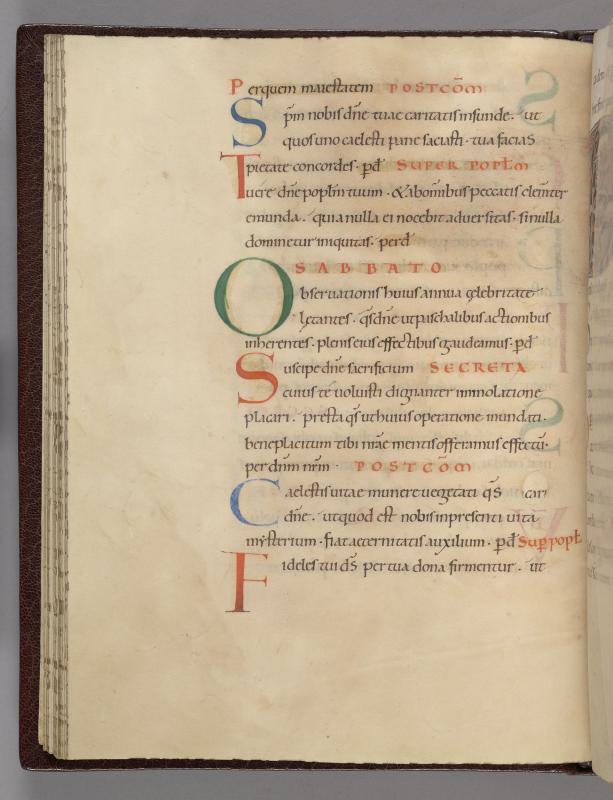 Per quem maiestatem POSTCOM̄
Sp̄m nobis dn̄e tuae caritatis infunde. ut
quos uno caelesti pane saciasti. tua facias
pietate concordes. ꝑ d̄ SUPER POPL̄M
Tuere dn̄e popl̄m tuum. & ab om̄ibus peccatis clem̄ter
emunda. quia nulla ei nocebit aduersitas. si nulla
dominetur iniquitas. per d̄
SABBATO
Obseruationis huius annua cęlebritate
lętantes. qs̄ dn̄e ut paschalibus actionibus
inherentes. plenis eius effectibus gaudeamus. ꝑ d̄
Suscipe dn̄e sacrificium SECRETA
cuius te uoluisti dignanter immolatione
placari. presta qs̄ ut huius operatione mundati.
beneplacitum tibi nr̄ae mentis offeramus effectū.
per dn̄m nr̄m. POSTCOM̄
Caelestis uitae munere uegetati qs̄
dn̄e. ut quod est nobis in presenti uita
mysterium. fiat aeternitatis auxilium. ꝑ d̄ Suꝑ popl̄
Fideles tui ds̄ per tua dona firmentur. ut